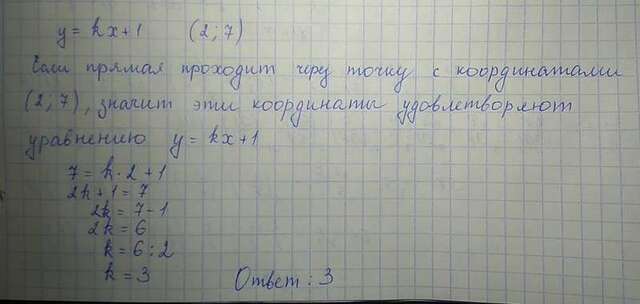 y = kx+1 (2; 7)
Если прямая проходит через точку с координатами
(2; 7), значит эти координаты удовлетворяют
уравнению y = kx+1
7 = k·2+1
2k+1 = 7
2k = 7-1
2k = 6
k = 6:2
k = 3 Ответ: 3